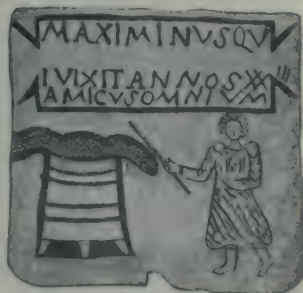 MAXIMINVSQV
IVIXITANNOSXXIII
AMICVSOMNIVM